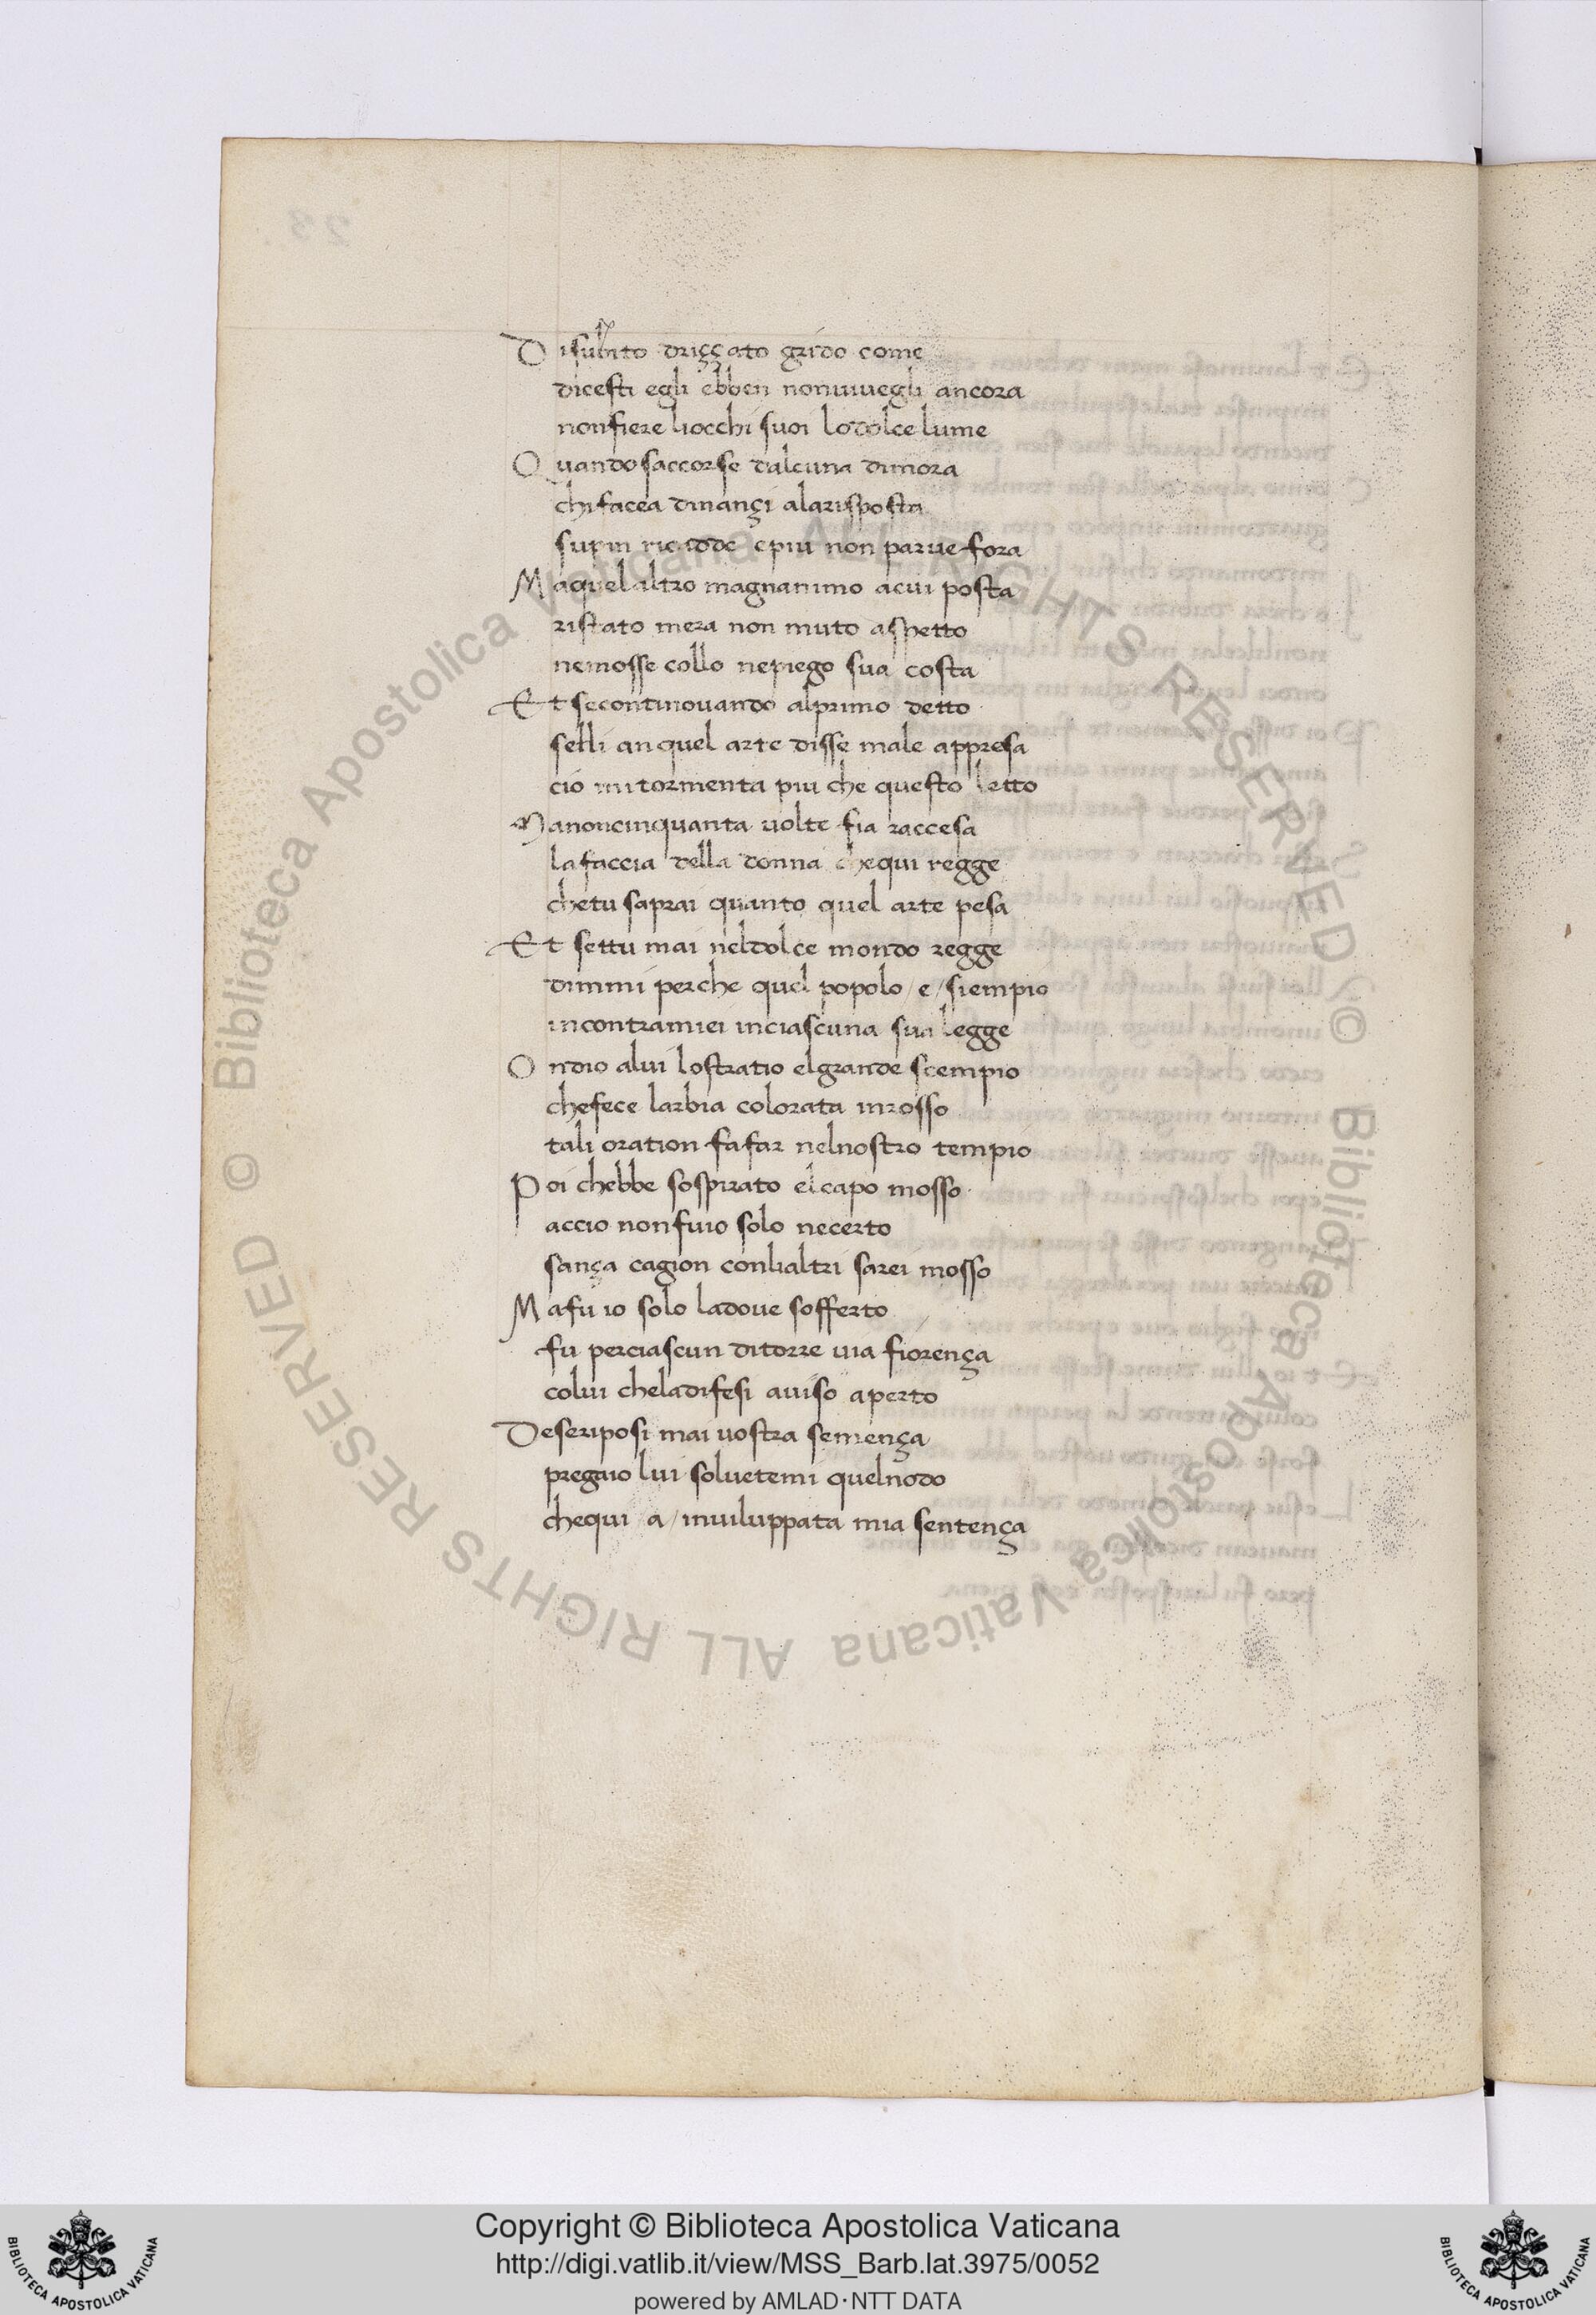 D isubito driççato grido come
dicesti egli ebben nonuiuegli ancora
nonfiere liocchi suoi lodolce lume
Q uando saccorse dalcuna dimora
chi facea dinançi alarisposta
supin ricadde epiu non parue fora
M aquelaltro magnanimo acui posta
ristato mera non muto aspetto
nemosse collo nepiego sua costa
Et secontinouando alprimo detto
selli anquel arte disse male appresa
cio mitormenta piu che questo letto
M anoncinquanta volte fia raccesa
la faccia della donna chequi regge
chetu saprai quanto quel arte pesa
Et settu mai neldolce mondo regge
dimmi perche quel popolo / e / siempio
incontramiei inciascuna sua legge
O ndio alui lostratio elgrande scempio
chefece larbia colorata inrosso
tali oration fafar nelnostro tempio
P oi chebbe sospirato elcapo mosso
accio nonfuio solo necerto
sança cagion conlialtri sarei mosso
M afu io solo ladoue sofferto
fu perciascun ditorre uia fiorença
colui cheladifesi auiso aperto
Deseriposi mai uostra semença
pregaio lui soluetemi quelnodo
chequi a / inuiluppata mia sentença
© Biblioteca Apostolica Vaticana ALL RIGHTS RESERVED © Biblioteca Apostolica Vaticana ALL RIGHTS RESERVED
Copyright © Biblioteca Apostolica Vaticana
http://digi.vatlib.it/view/MSS_Barb.lat.3975/0052
powered by AMLAD·NTT DATA
BIBLIOTECA APOSTOLICA VATICANA
BIBLIOTECA APOSTOLICA VATICANA